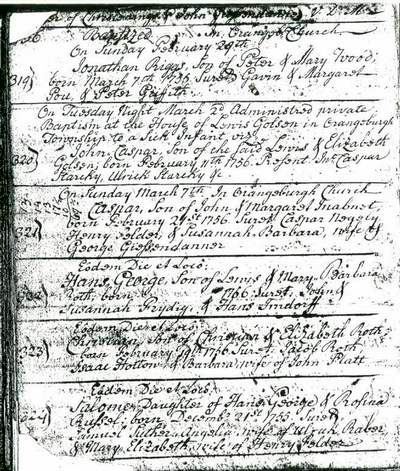 of Christenings by John Giessendanner, V.D.M. &c
1756
Baptized In Orangeb. Church
On Sunday February 29th
319) Jonathan Riggs, Son of Peter & Mary Wood,
born March 7th 1735. Suret. Gavin & Margaret
Pou, & Peter Griffith.
On Tuesday Night March 2d Administred private
Baptism at the House of Lewis Golsen in Orangeburgh
Township to a Sick Infant, viz:
320) John Caspar, Son of the said Lewis & Elizabeth
Golsen; born February 11th 1756. Present Inc. Caspar
Starchy, Ulrick Starchy &c
On Sunday March 7th In Orangeburgh Church
Caspar, Son of John & Margaret Inabnet,
321) born February 2d 1756 Suret. Caspar Negely
Henry Felder, & Susannah Barbara, wife of
George Giessendanner
Eodem Die et Loco:
322) Hans George, Son of Lewis & Mary Barbara
Roth, born 1756 Suret. John &
Susannah Frydig, & Hans Imdorff
Eodem Die et Loco:
323) Christian, Son of Christian & Elizabeth Roth
born February 19th 1756 Suret. Jacob Roth
Isaac Hottow & Barbara, wife of John Platt
Eodem Die et Loco:
324) Salome, Daughter of Hans George & Rosina
Russel, born December 21st 1755 Suret.
Samuel Suther, Angelia, wife of Ulrick Raber
& Mary Elizabeth, wife of Henry Felder